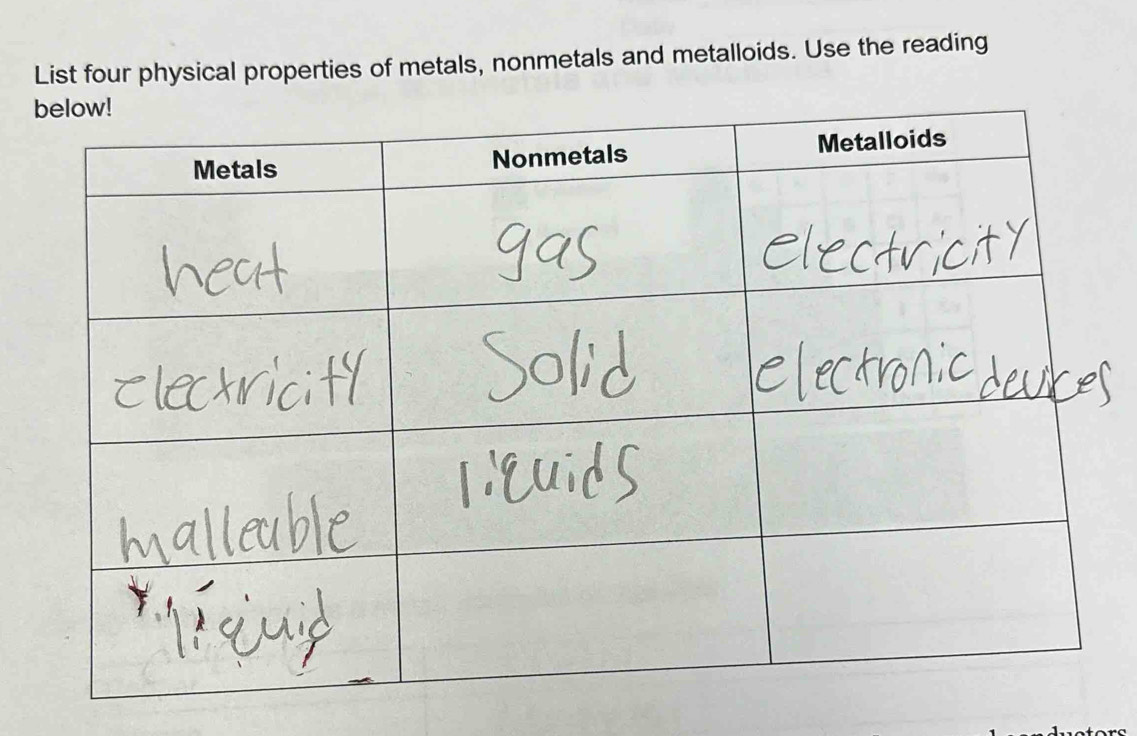 List four physical properties of metals, nonmetals and metalloids. Use the reading
below!
Metals Nonmetals Metalloids
heat gas electricity
electricity Solid electronic devices
malleable liquids
liquid